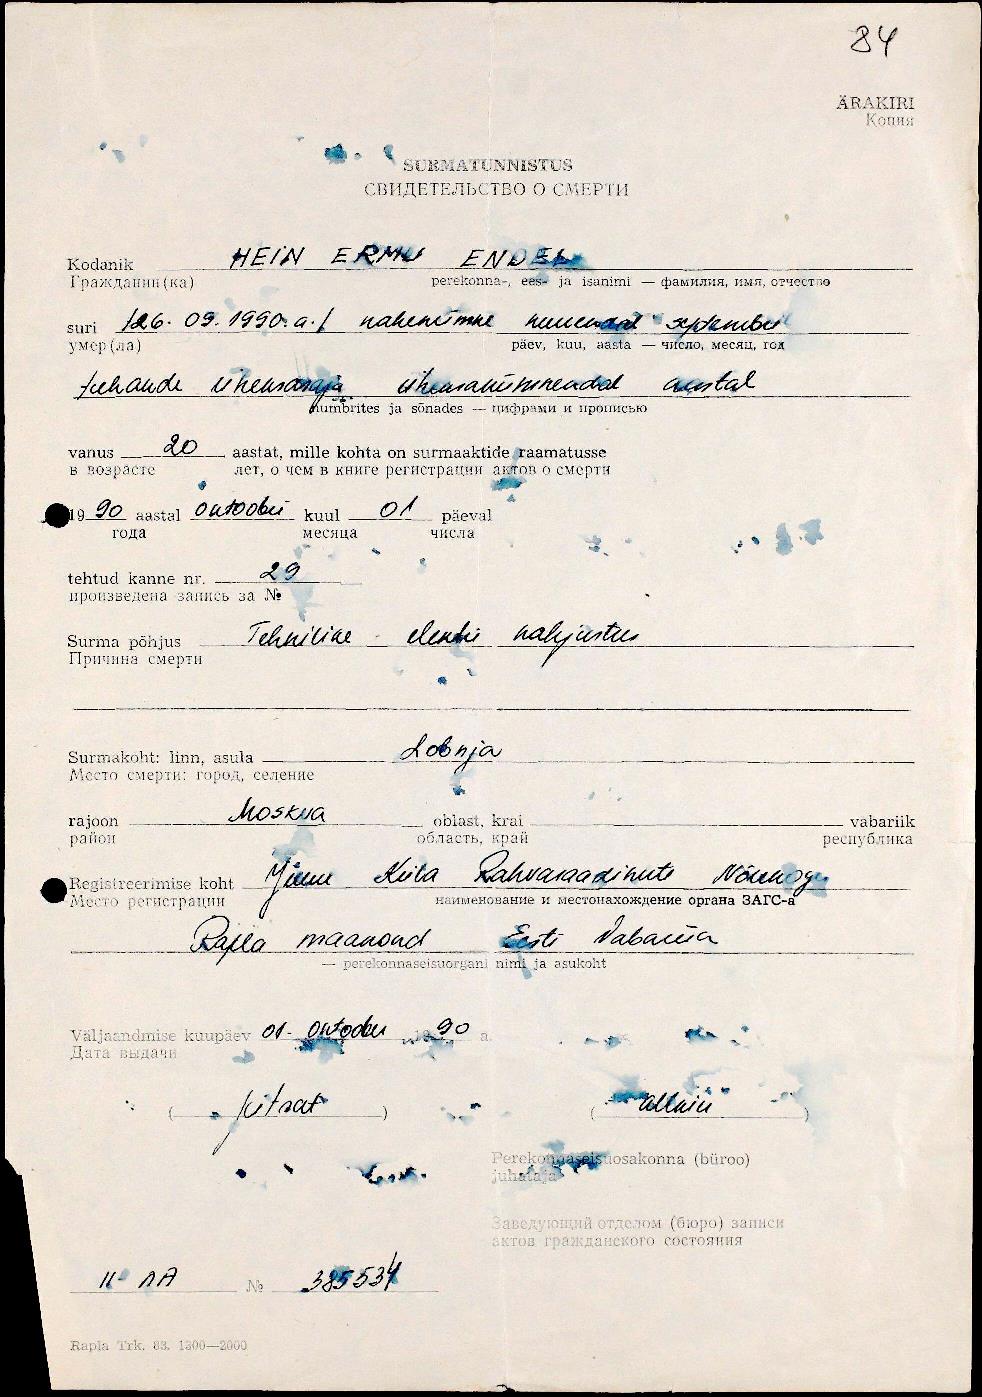 84
ÄRAKIRI
Копия
SURMATUNNISTUS
СВИДЕТЕЛЬСТВО О СМЕРТИ
Kodanik HEIN ERMU ENDEL
Гражданин(ка) perekonna-, ees- ja isanimi — фамилия, имя, отчество
suri /26. 09. 1990.a./ kahekümne kuuendal septembri
умер(ла) päev, kuu, aasta — число, месяц, год
tuhande üheksasaja üheksakümnendal aastal
numbrites ja sõnades — цифрами и прописью
vanus 20 aastat, mille kohta on surmaaktide raamatusse
в возрасте лет, о чем в книге регистрации актов о смерти
1990 aastal oktoobri kuul 01 päeval
года месяца числа
tehtud kanne nr. 29
произведена запись за №
Surma põhjus Tehniline - elektri kahjustus
Причина смерти
Surmakoht: linn, asula Lobnja
Место смерти: город, селение
rajoon Moskva oblast, krai vabariik
район область, край республика
Registreerimise koht Keila Rahvasaadikute Nõukogu
Место регистрации наименование и местонахождение органа ЗАГС-а
Rapla maakond Eesti Vabariik
— perekonnaseisuorgani nimi ja asukoht
Väljaandmise kuupäev 01. oktoober 1990 a.
Дата выдачи
( ) ( allkiri )
Perekonnaseisuosakonna (büroo)
juhataja
Заведующий отделом (бюро) записи
актов гражданского состояния
II-ЛА № 385534
Rapla Trk. 83. 1300—2000